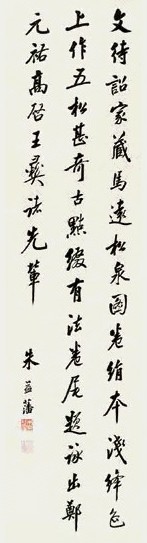 文待詔家藏馬遠松泉圖卷絹本淺絳色
上作五松甚奇古點綴有法卷尾題詠出鄭
元祐高啓王彞諸先輩
朱益藩